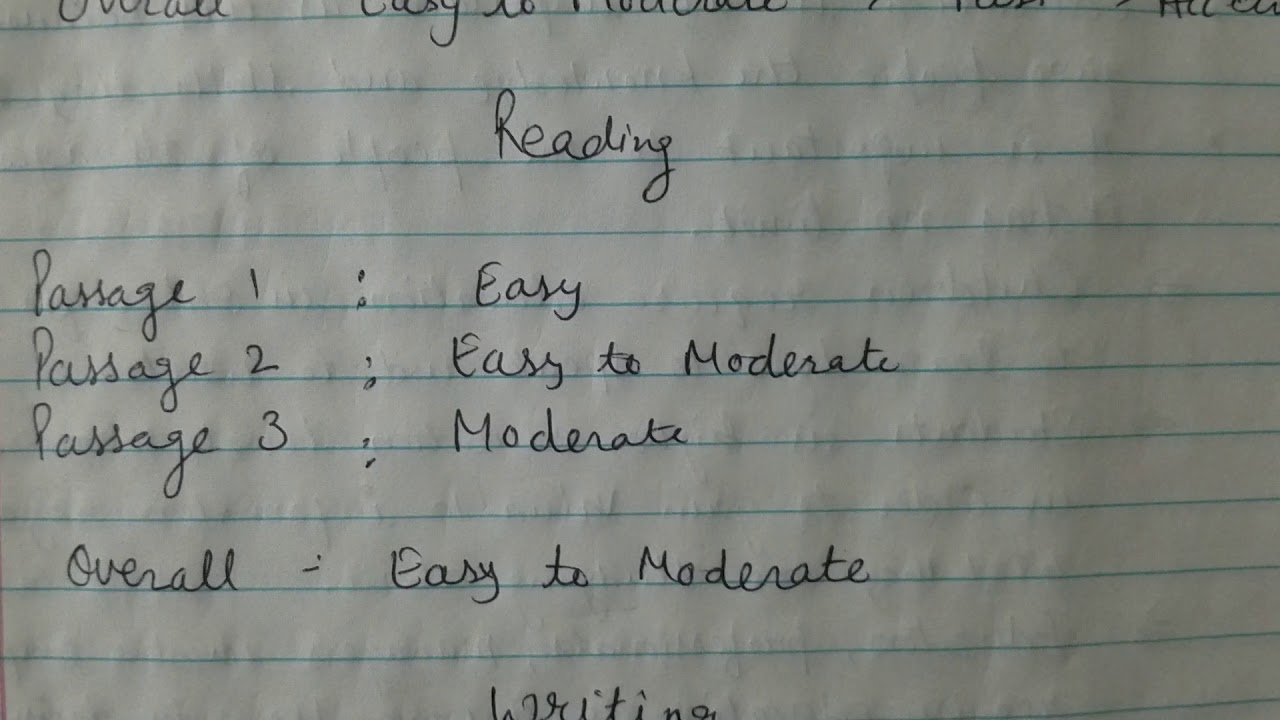 Overall Easy to Moderate
Reading
Passage 1 : Easy
Passage 2 : Easy to Moderate
Passage 3 : Moderate
Overall :- Easy to Moderate
Writing